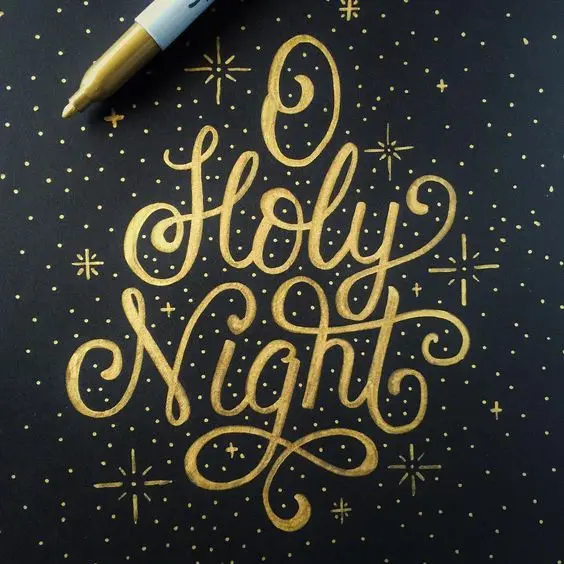 O
Holy
Night